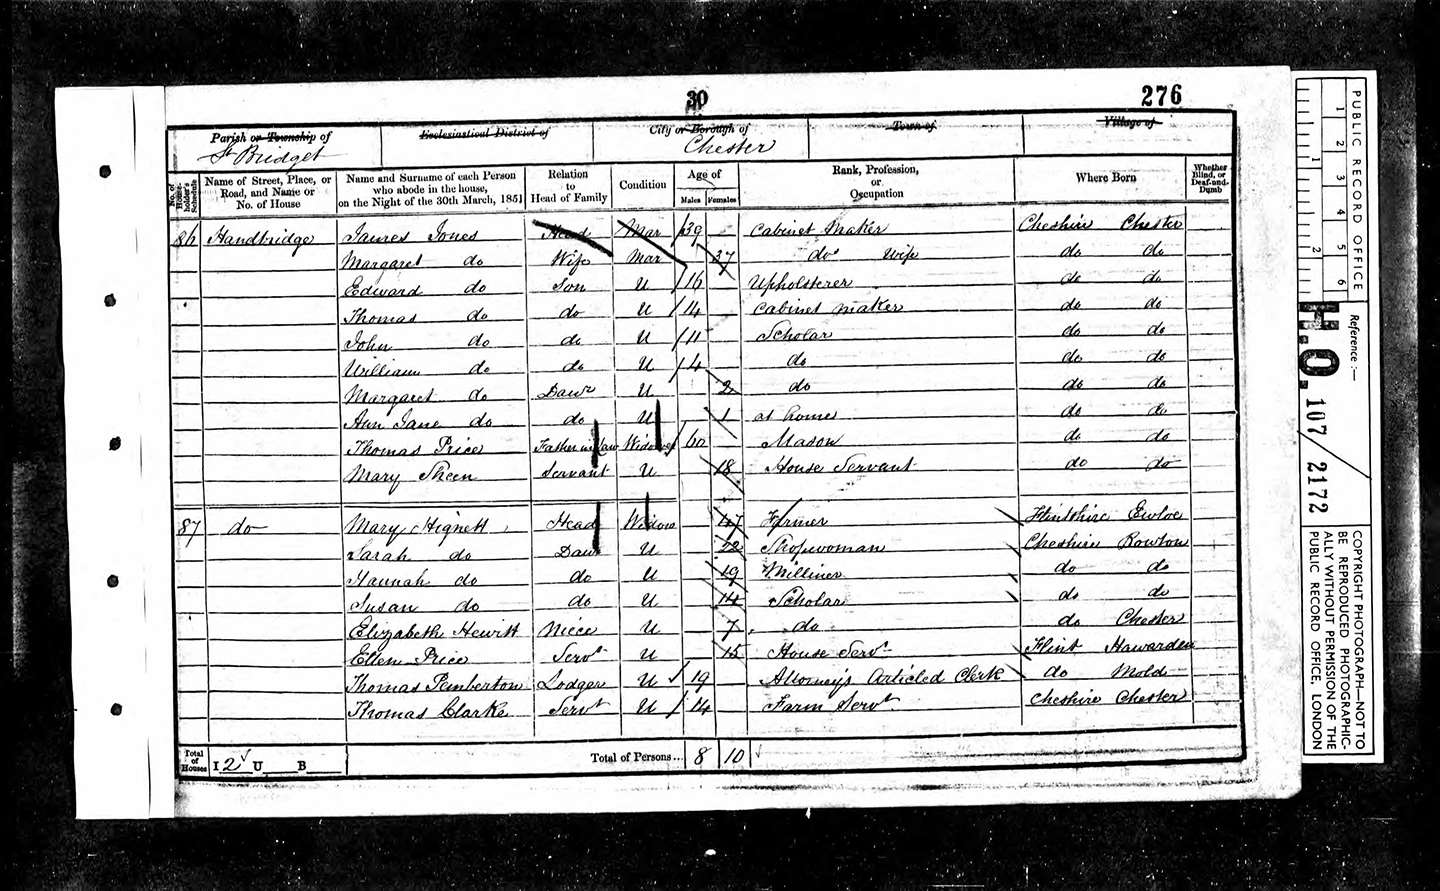 30
276
Parish or Township of
St Bridget
Ecclesiastical District of
City or Borough of
Chester
Town of
Village of
No. of House-holder's Schedule
Name of Street, Place, or Road, and Name or No. of House
Name and Surname of each Person who abode in the house, on the Night of the 30th March, 1851
Relation to Head of Family
Condition
Age of
Males Females
Rank, Profession, or Occupation
Where Born
Whether Blind, or Deaf-and-Dumb
86 Handbridge James Jones Head Mar 39 Cabinet Maker Cheshire Chester
Margaret do Wife Mar 37 do Wife do do
Edward do Son U 16 Upholsterer do do
Thomas do do U 14 Cabinet maker do do
John do do U 11 Scholar do do
William do do U 4 do do do
Margaret do Daur U 2 do do do
Ann Jane do do U 1 at home do do
Thomas Price Father in law Widower 60 Mason do do
Mary Sheen Servant U 18 House Servant do do
87 do Mary Hignett Head Widow 47 Farmer Flintshire Ewloe
Sarah do Daur U 22 Shopwoman Cheshire Rowton
Hannah do do U 19 Milliner do do
Susan do do U 14 Scholar do do
Elizabeth Hewitt Niece U 7 do do Chester
Ellen Price Servt U 15 House Servt Flint Hawarden
Thomas Pemberton Lodger U 19 Attorney's Articled Clerk do Mold
Thomas Clarke Servt U 14 Farm Servt Cheshire Chester
Total of Houses I 2 U B Total of Persons... 8 10
PUBLIC RECORD OFFICE
1 2 3 4 5 6
1 2
Reference :—
H.O. 107 / 2172
COPYRIGHT PHOTOGRAPH—NOT TO
BE REPRODUCED PHOTOGRAPHIC-
ALLY WITHOUT PERMISSION OF THE
PUBLIC RECORD OFFICE, LONDON